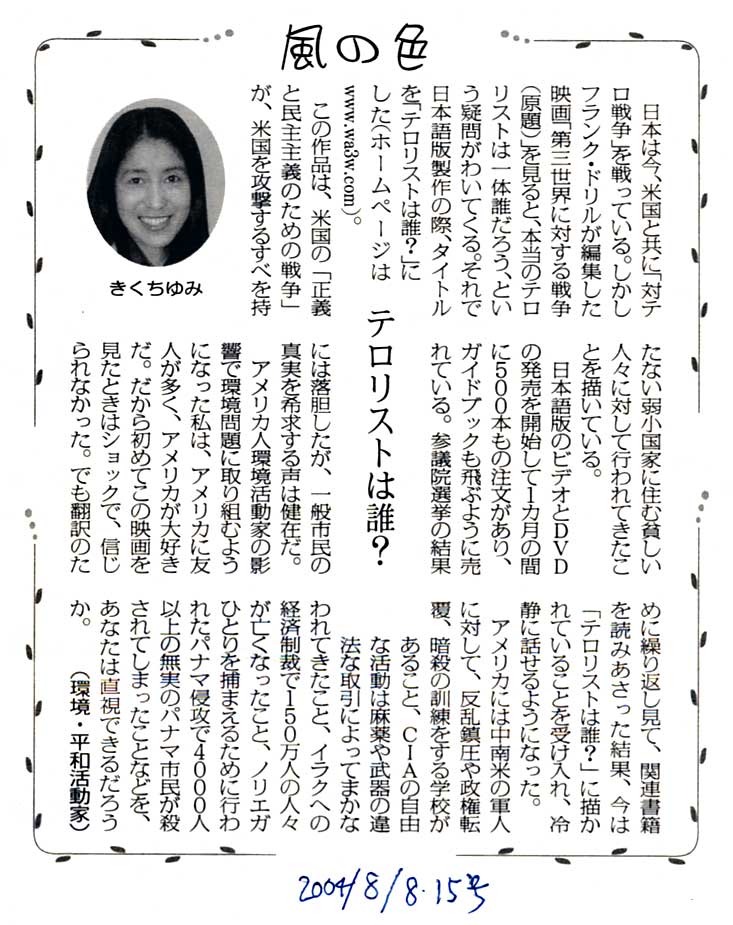 風の色
きくちゆみ
テロリストは誰？
　日本は今、米国と共に「対テ
ロ戦争」を戦っている。しかし
フランク・ドリルが編集した
映画「第三世界に対する戦争
（原題）」を見ると、本当のテロ
リストは一体誰だろう、とい
う疑問がわいてくる。それで
日本語版製作の際、タイトル
を「テロリストは誰？」に
した（ホームページは
www.wa3w.com）。
　この作品は、米国の「正義
と民主主義のための戦争」
が、米国を攻撃するすべを持
たない弱小国家に住む貧しい
人々に対して行われてきたこ
とを描いている。
　日本語版のビデオとＤＶＤ
の発売を開始して１カ月の間
に５００本もの注文があり、
ガイドブックも飛ぶように売
れている。参議院選挙の結果
には落胆したが、一般市民の
真実を希求する声は健在だ。
　アメリカ人環境活動家の影
響で環境問題に取り組むよう
になった私は、アメリカに友
人が多く、アメリカが大好き
だ。だから初めてこの映画を
見たときはショックで、信じ
られなかった。でも翻訳のた
めに繰り返し見て、関連書籍
を読みあさった結果、今は
「テロリストは誰？」に描か
れていることを受け入れ、冷
静に話せるようになった。
　アメリカには中南米の軍人
に対して、反乱鎮圧や政権転
覆、暗殺の訓練をする学校が
あること、ＣＩＡの自由
な活動は麻薬や武器の違
法な取引によってまかな
われてきたこと、イラクへの
経済制裁で１５０万人の人々
が亡くなったこと、ノリエガ
ひとりを捕まえるために行わ
れたパナマ侵攻で４０００人
以上の無実のパナマ市民が殺
されてしまったことなどを、
あなたは直視できるだろう
か。　　（環境・平和活動家）
2004/8/8・15号